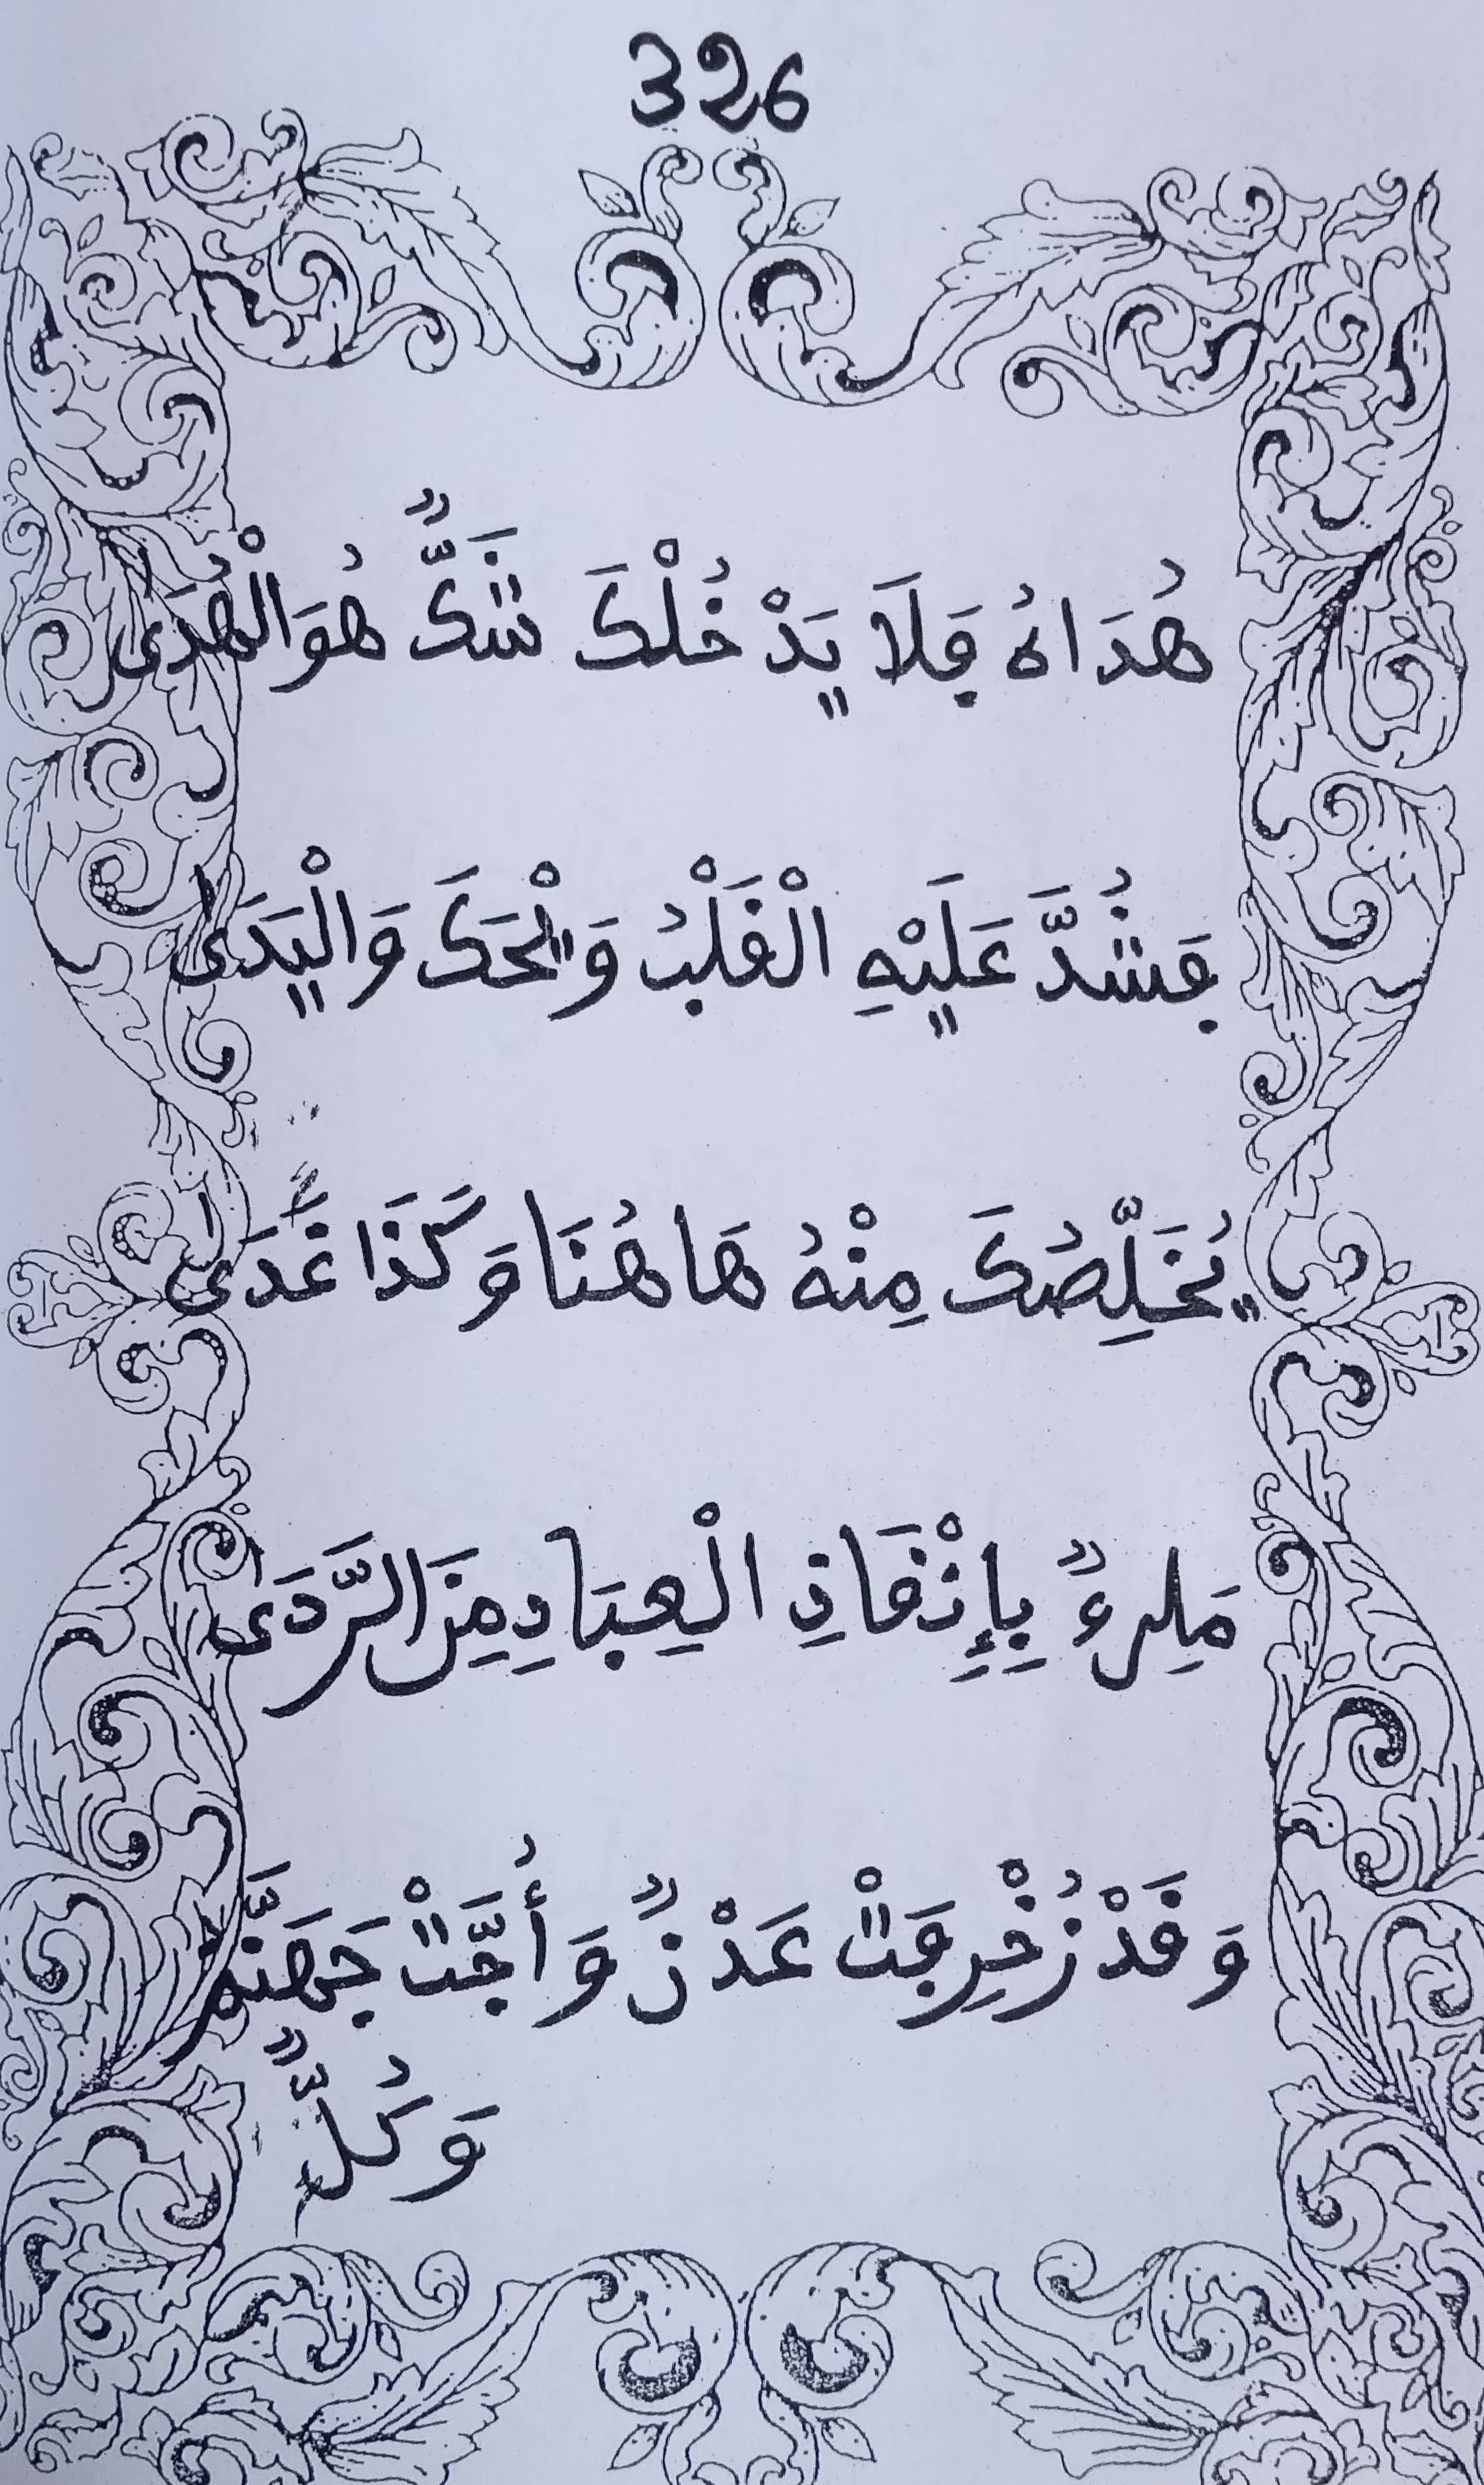 326
هُدَاهُ فَلَا يَدْخُلْكَ شَكٌّ هُوَ الْهُدَى
فَشُدَّ عَلَيْهِ الْقَلْبُ وَيْحَكَ وَالْيَدَى
يُخَلِّصُكَ مِنْهُ هَاهُنَا وَكَذَا غَدًى
مَلِيءٌ بِإِنْقَاذِ الْعِبَادِ مِنَ الرَّدَى
وَقَدْ زُخْرِفَتْ عَدْنٌ وَأُجَّتْ جَهَنَّمُ
وَكُلٌّ